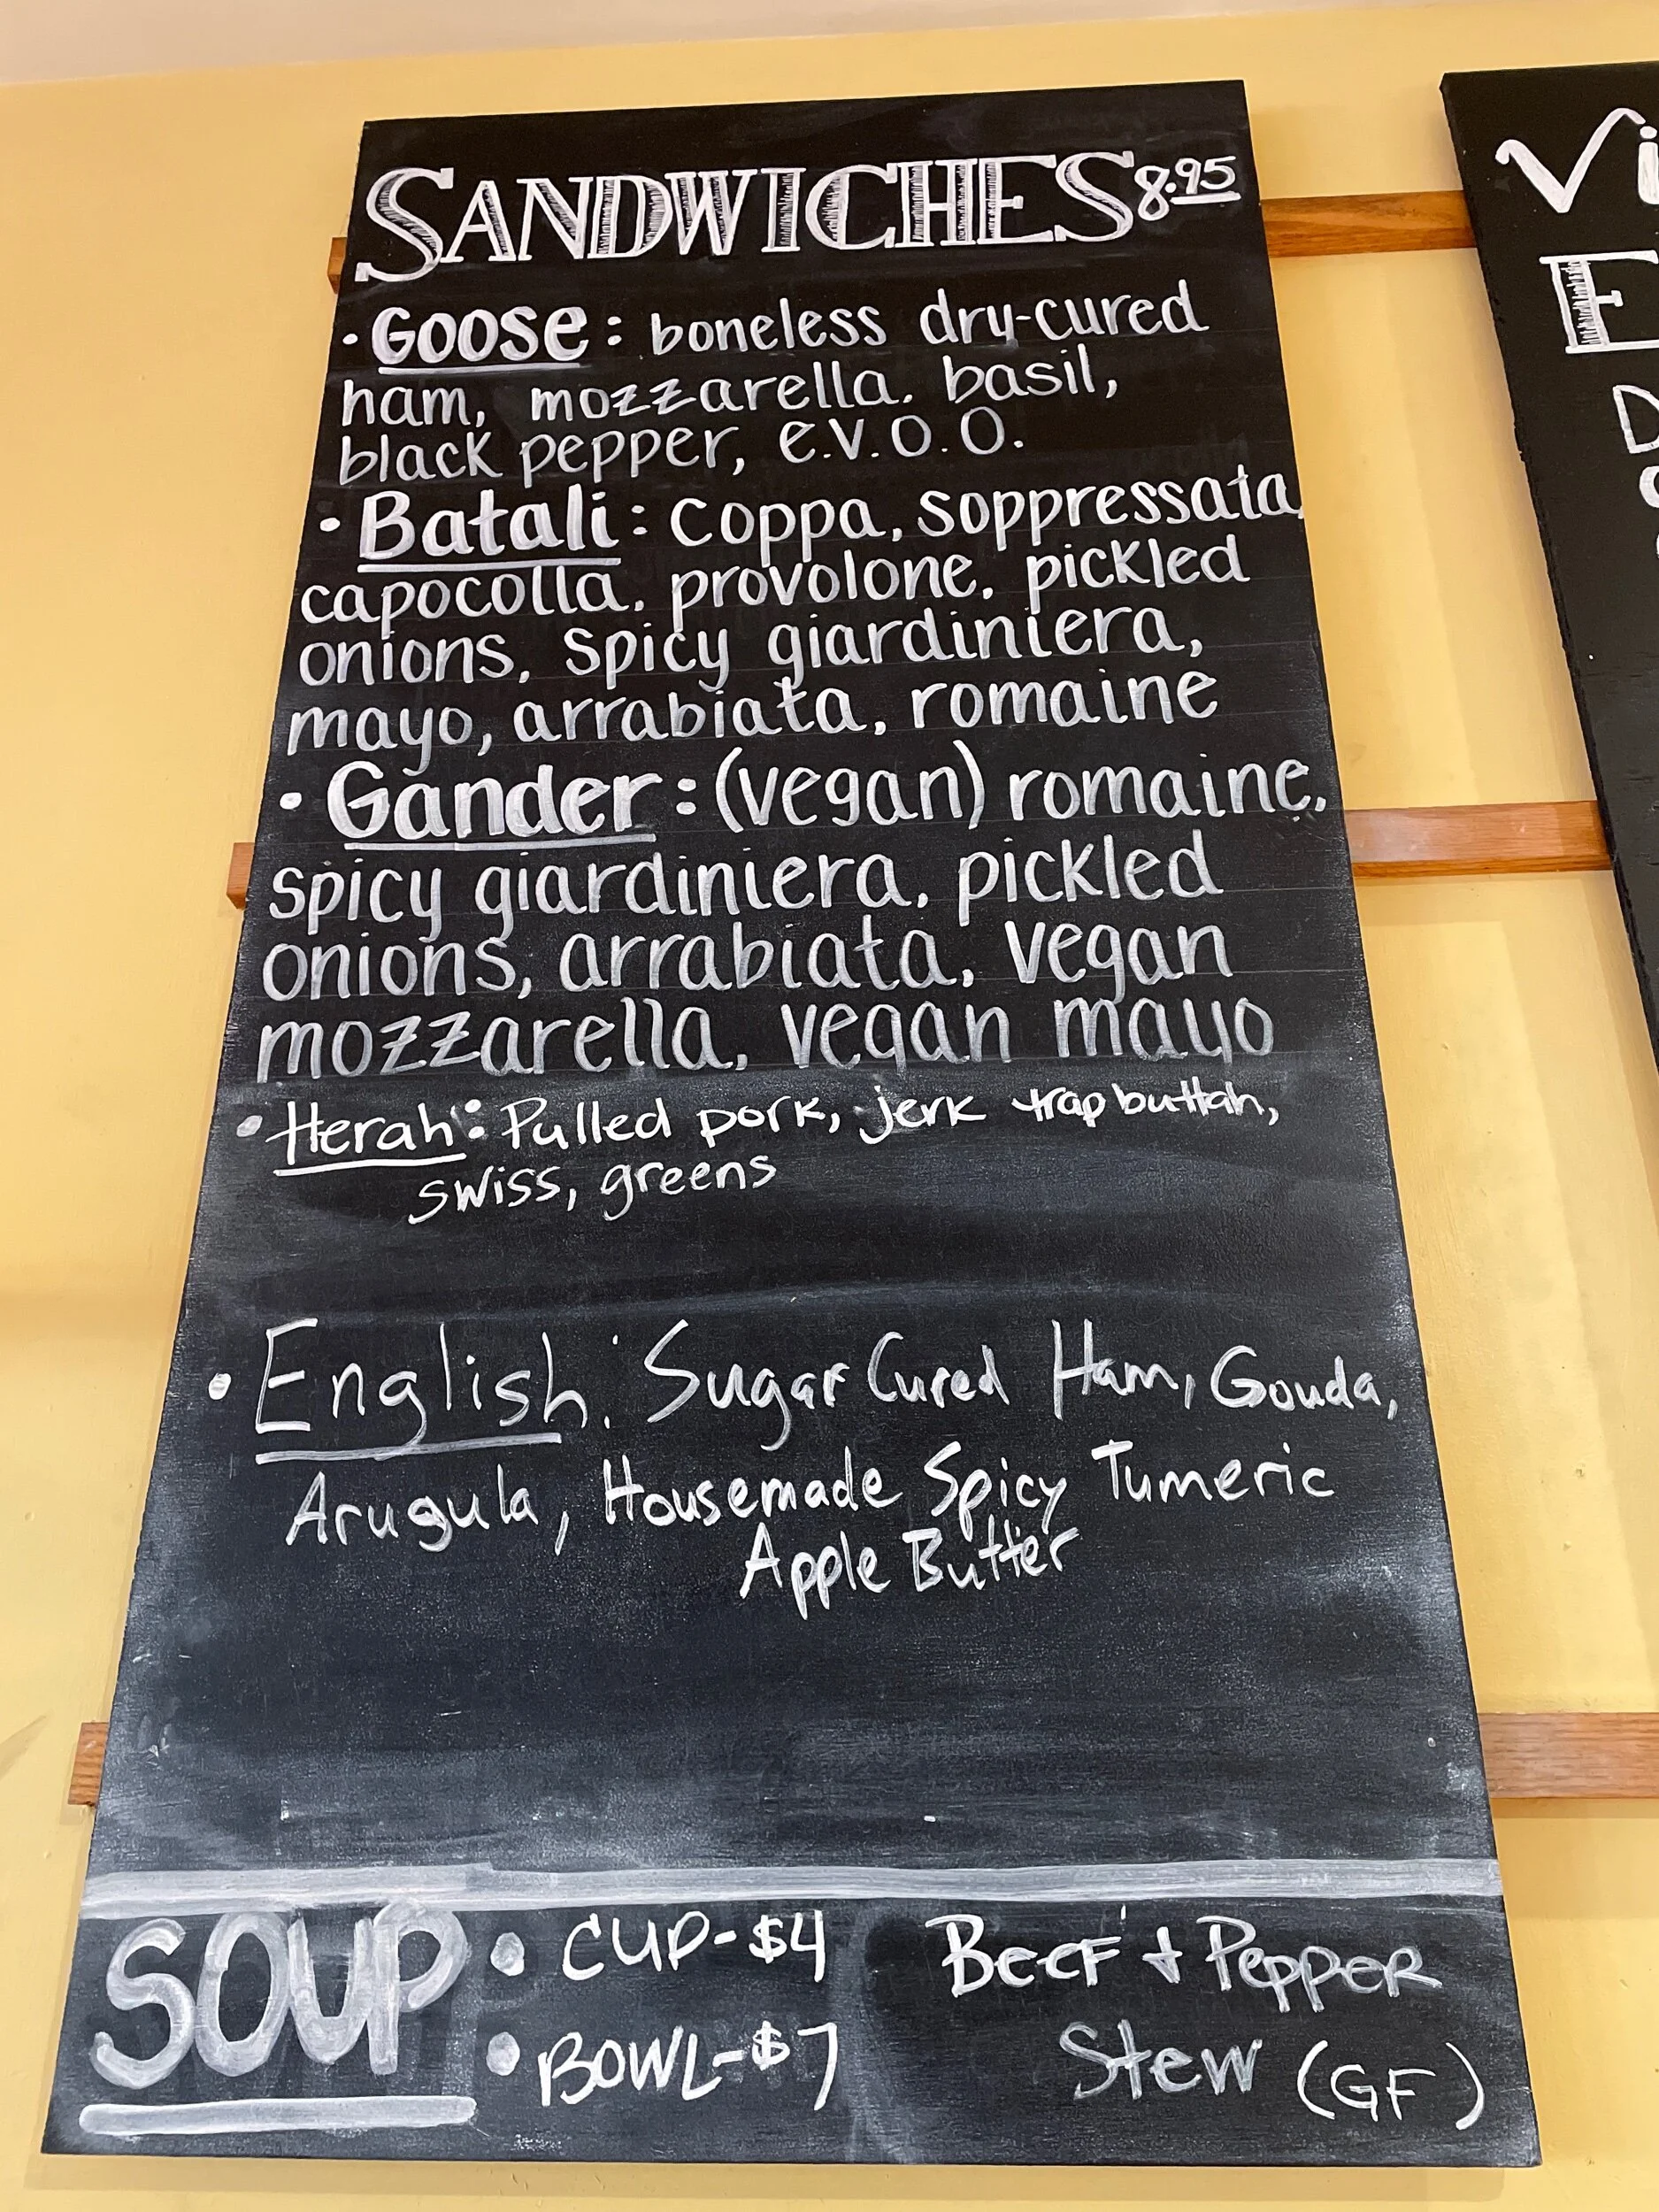 SANDWICHES 8.95
• Goose: boneless dry-cured
ham, mozzarella. basil,
black pepper, e.v.o.o.
• Batali: coppa, soppressata,
capocolla, provolone, pickled
onions, spicy giardiniera,
mayo, arrabiata, romaine
• Gander: (vegan) romaine,
spicy giardiniera, pickled
onions, arrabiata, vegan
mozzarella, vegan mayo
• Herah: Pulled pork, jerk trap buttah,
swiss, greens
• English: Sugar Cured Ham, Gouda,
Arugula, Housemade Spicy Tumeric
Apple Butter
SOUP
• CUP-$4
• BOWL-$7
BEEF + PEPPER
Stew (GF)